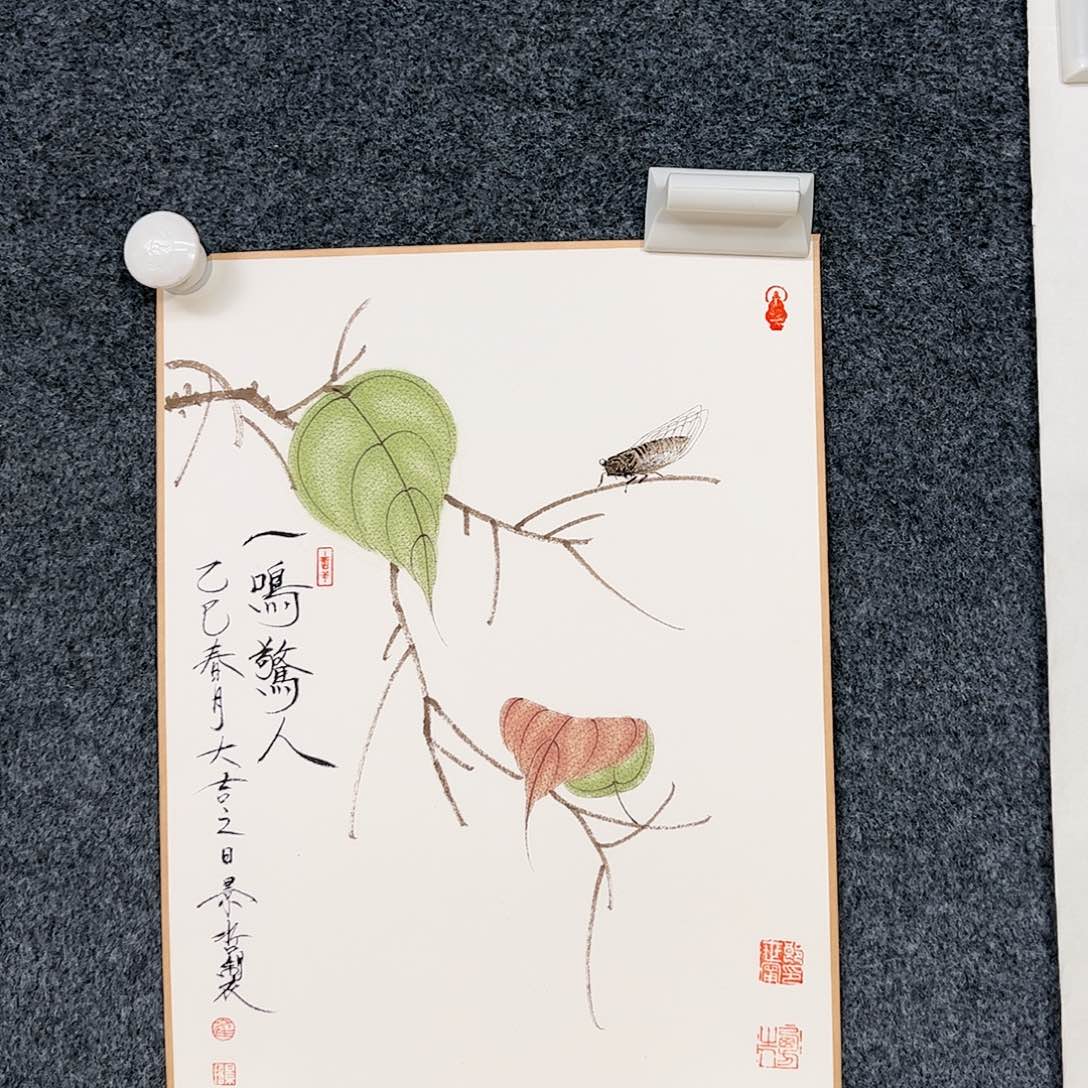 一鳴驚人
乙巳春月大吉之日景岩製